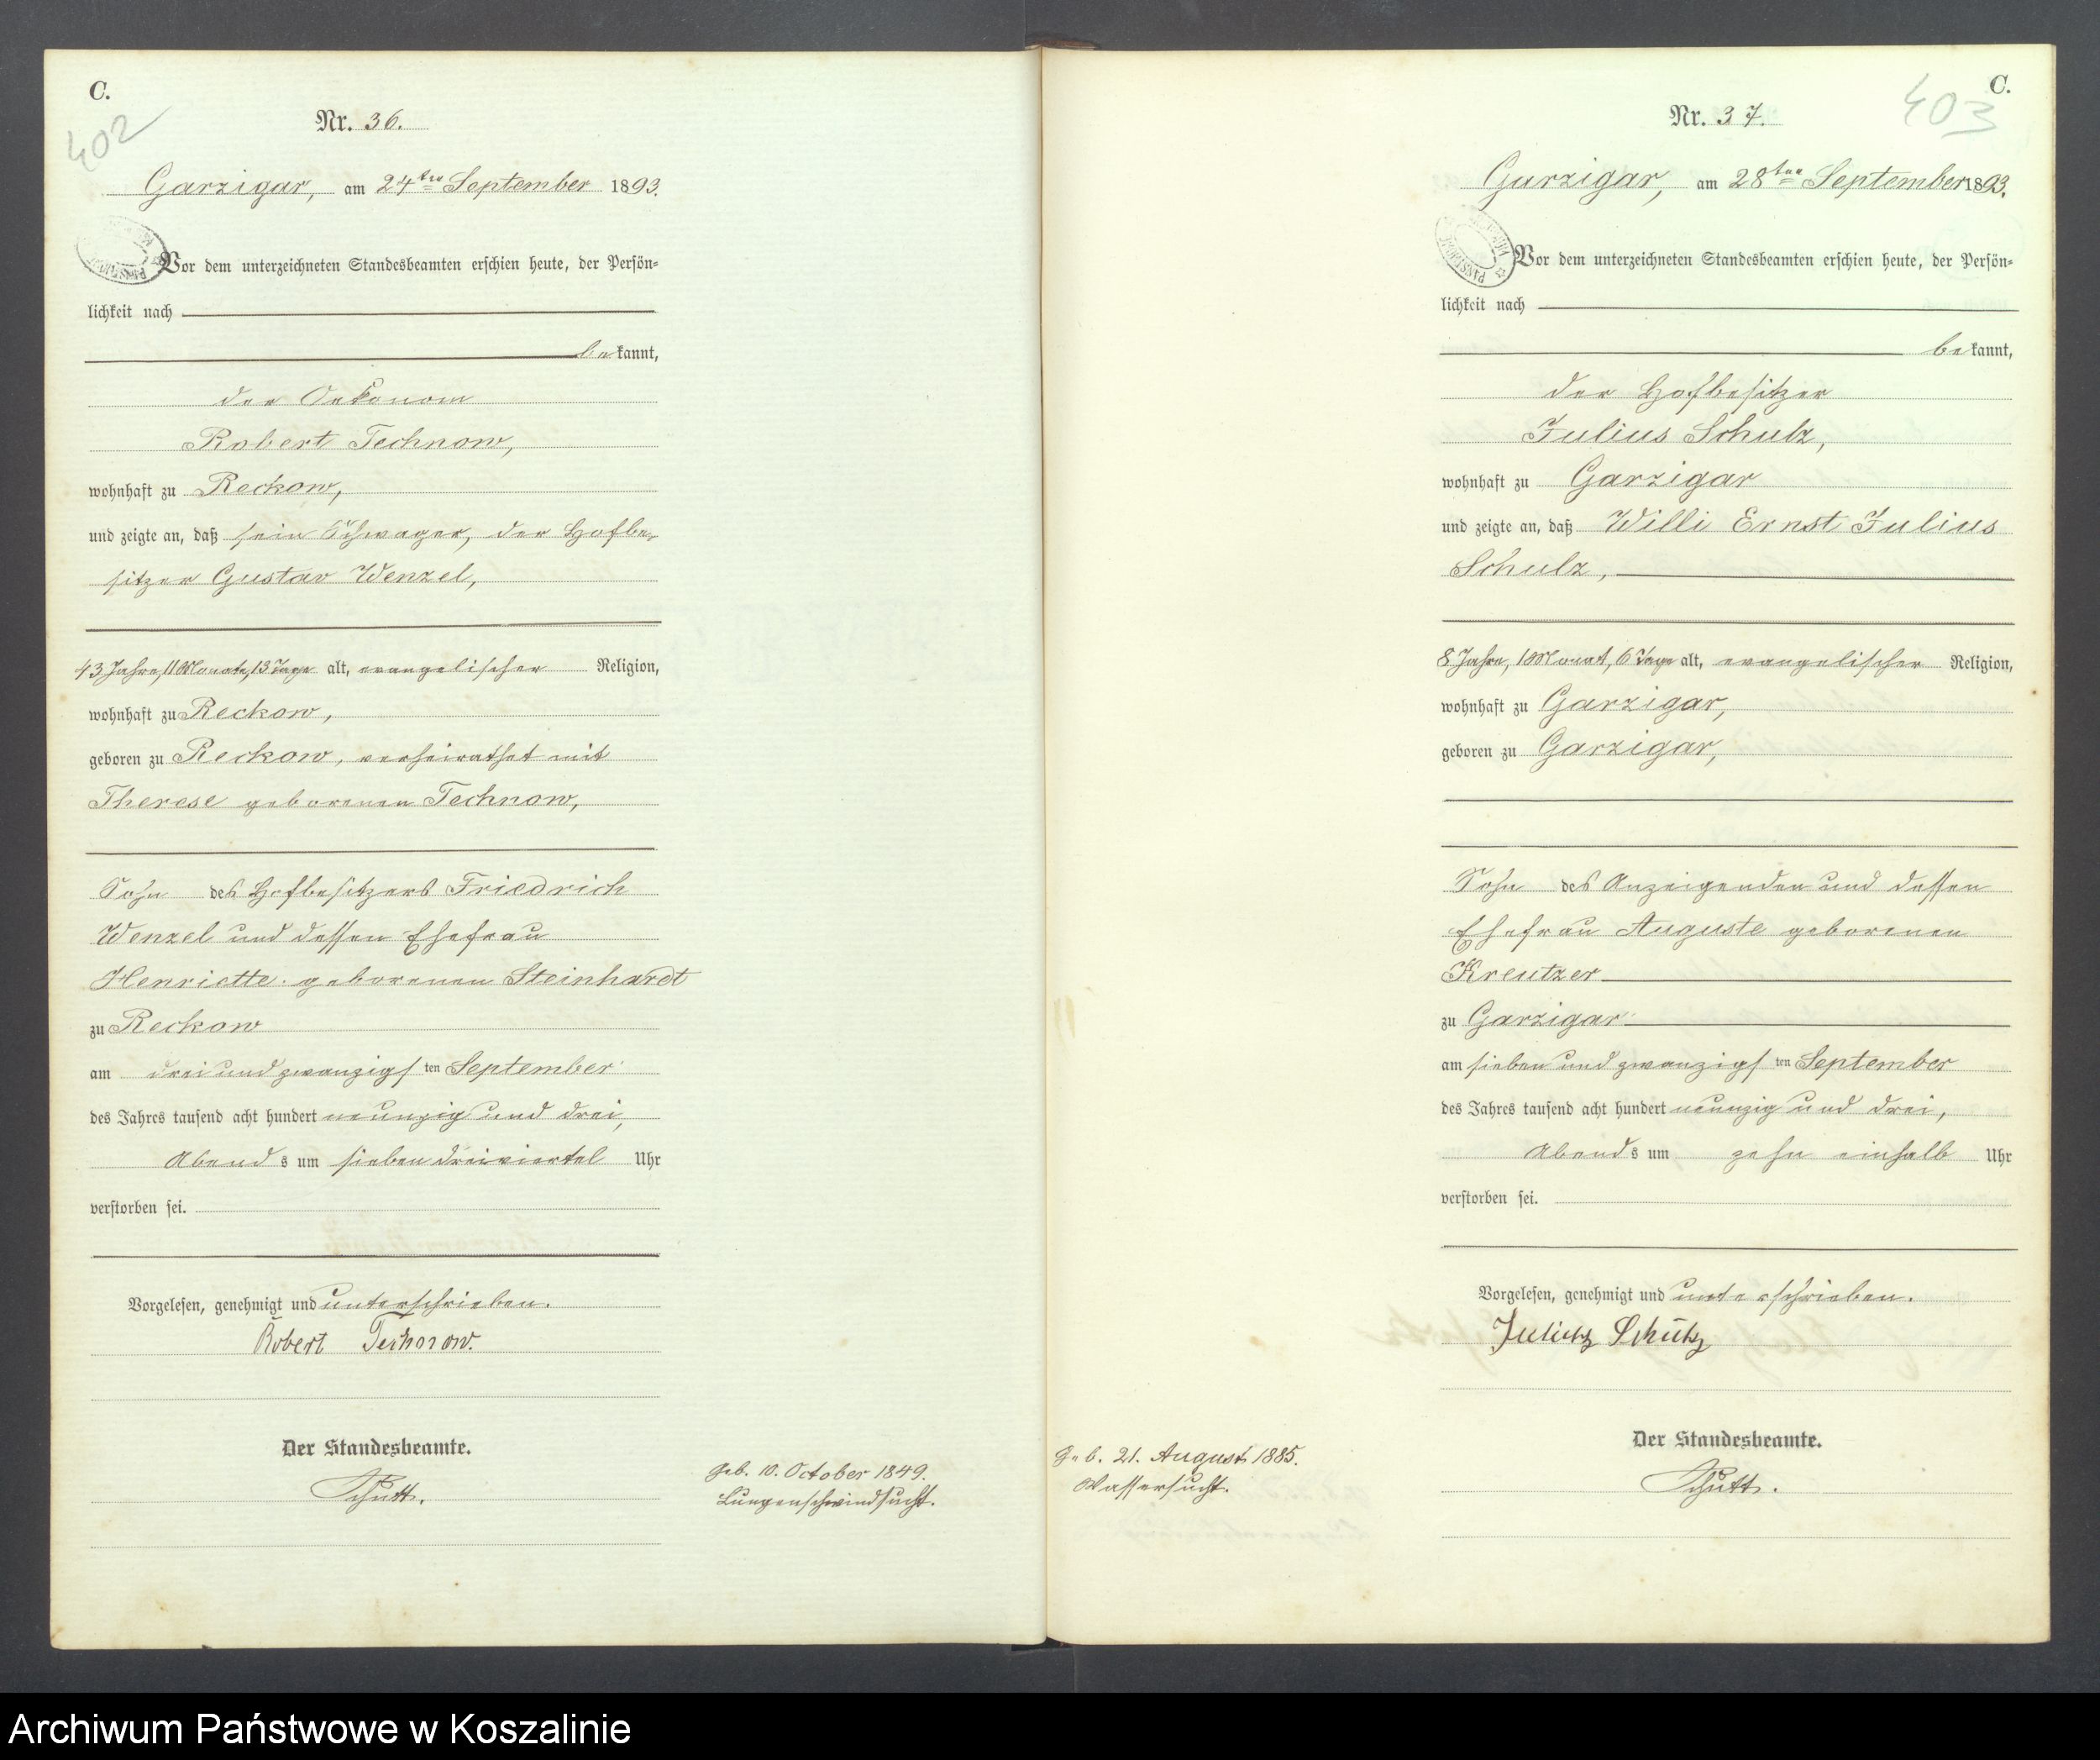 C.
402
Nr. 36.
Garzigar, am 24ten September 1893.
Vor dem unterzeichneten Standesbeamten erschien heute, der Persön-
lichkeit nach
bekannt,
der Oekonom
Robert Technow,
wohnhaft zu Reckow,
und zeigte an, daß sein Schwager, der Hofbe-
sitzer Gustav Wenzel,
43 Jahre, 11 Monate, 13 Tage alt, evangelischer Religion,
wohnhaft zu Reckow,
geboren zu Reckow, verheirathet mit
Therese geborenen Technow,
Sohn des Hofbesitzers Friedrich
Wenzel und dessen Ehefrau
Henriette geborenen Steinhardt
zu Reckow
am drei und zwanzigsten September
des Jahres tausend acht hundert neunzig und drei,
Abends um sieben dreiviertel Uhr
verstorben sei.
Vorgelesen, genehmigt und unterschrieben.
Robert Technow.
Der Standesbeamte.
Schütt.
Geb. 10. October 1849.
Lungenschwindsucht.
C.
403
Nr. 37.
Garzigar, am 28ten September 1893.
Vor dem unterzeichneten Standesbeamten erschien heute, der Persön-
lichkeit nach
bekannt,
der Hofbesitzer
Julius Schulz,
wohnhaft zu Garzigar
und zeigte an, daß Willi Ernst Julius
Schulz,
8 Jahre, 1 Monat, 6 Tage alt, evangelischer Religion,
wohnhaft zu Garzigar,
geboren zu Garzigar,
Sohn des Anzeigenden und dessen
Ehefrau Auguste geborenen
Kreutzer
zu Garzigar
am sieben und zwanzigsten September
des Jahres tausend acht hundert neunzig und drei,
Abends um zehn einhalb Uhr
verstorben sei.
Vorgelesen, genehmigt und unterschrieben.
Julius Schulz
Der Standesbeamte.
Schütt.
Geb. 21. August 1885.
Wassersucht.
Archiwum Państwowe w Koszalinie